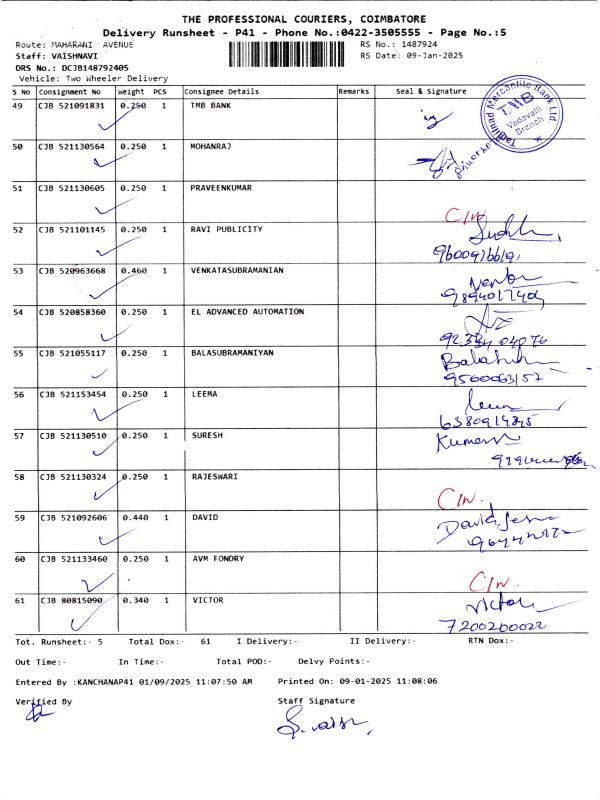 THE PROFESSIONAL COURIERS, COIMBATORE
Delivery Runsheet - P41 - Phone No.:0422-3505555 - Page No.:5
Route: MAHARANI AVENUE RS No.: 1487924
Staff: VAISHNAVI RS Date: 09-Jan-2025
DRS No.: DCJB148792405
Vehicle: Two Wheeler Delivery
S No Consignment No Weight PCS Consignee Details Remarks Seal & Signature
49 CJB 521091831 0.250 1 TMB BANK
Tamilnad Mercantile Bank Ltd.
TMB
Vadavalli
Branch
50 CJB 521130564 0.250 1 MOHANRAJ
51 CJB 521130605 0.250 1 PRAVEENKUMAR
C/N
52 CJB 521101145 0.250 1 RAVI PUBLICITY
53 CJB 520963668 0.460 1 VENKATASUBRAMANIAN
54 CJB 520858360 0.250 1 EL ADVANCED AUTOMATION
55 CJB 521055117 0.250 1 BALASUBRAMANIYAN
9500063157
56 CJB 521153454 0.250 1 LEEMA
57 CJB 521130510 0.250 1 SURESH
58 CJB 521130324 0.250 1 RAJESWARI
C/N.
59 CJB 521092606 0.440 1 DAVID
David
60 CJB 521133460 0.250 1 AVM FONDRY
C/N.
61 CJB 80815090 0.340 1 VICTOR
Victor
7200200022
Tot. Runsheet:- 5 Total Dox:- 61 I Delivery:- II Delivery:- RTN Dox:-
Out Time:- In Time:- Total POD:- Delvy Points:-
Entered By :KANCHANAP41 01/09/2025 11:07:50 AM Printed On: 09-01-2025 11:08:06
Verified By Staff Signature
S. vaish